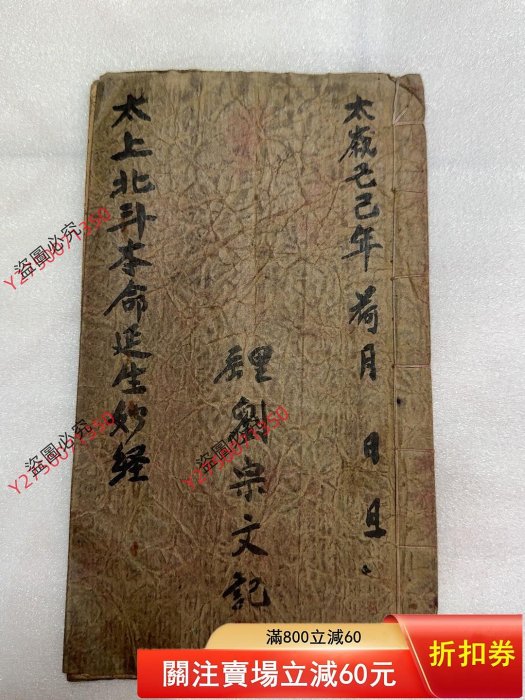 太嵗乙巳年 荷月 日 旦
劉宗文記
太上北斗本命延生妙経
盜圖必究
盜圖必究
盜圖必究
盜圖必究
滿800立減60
關注賣場立減60元
折扣券